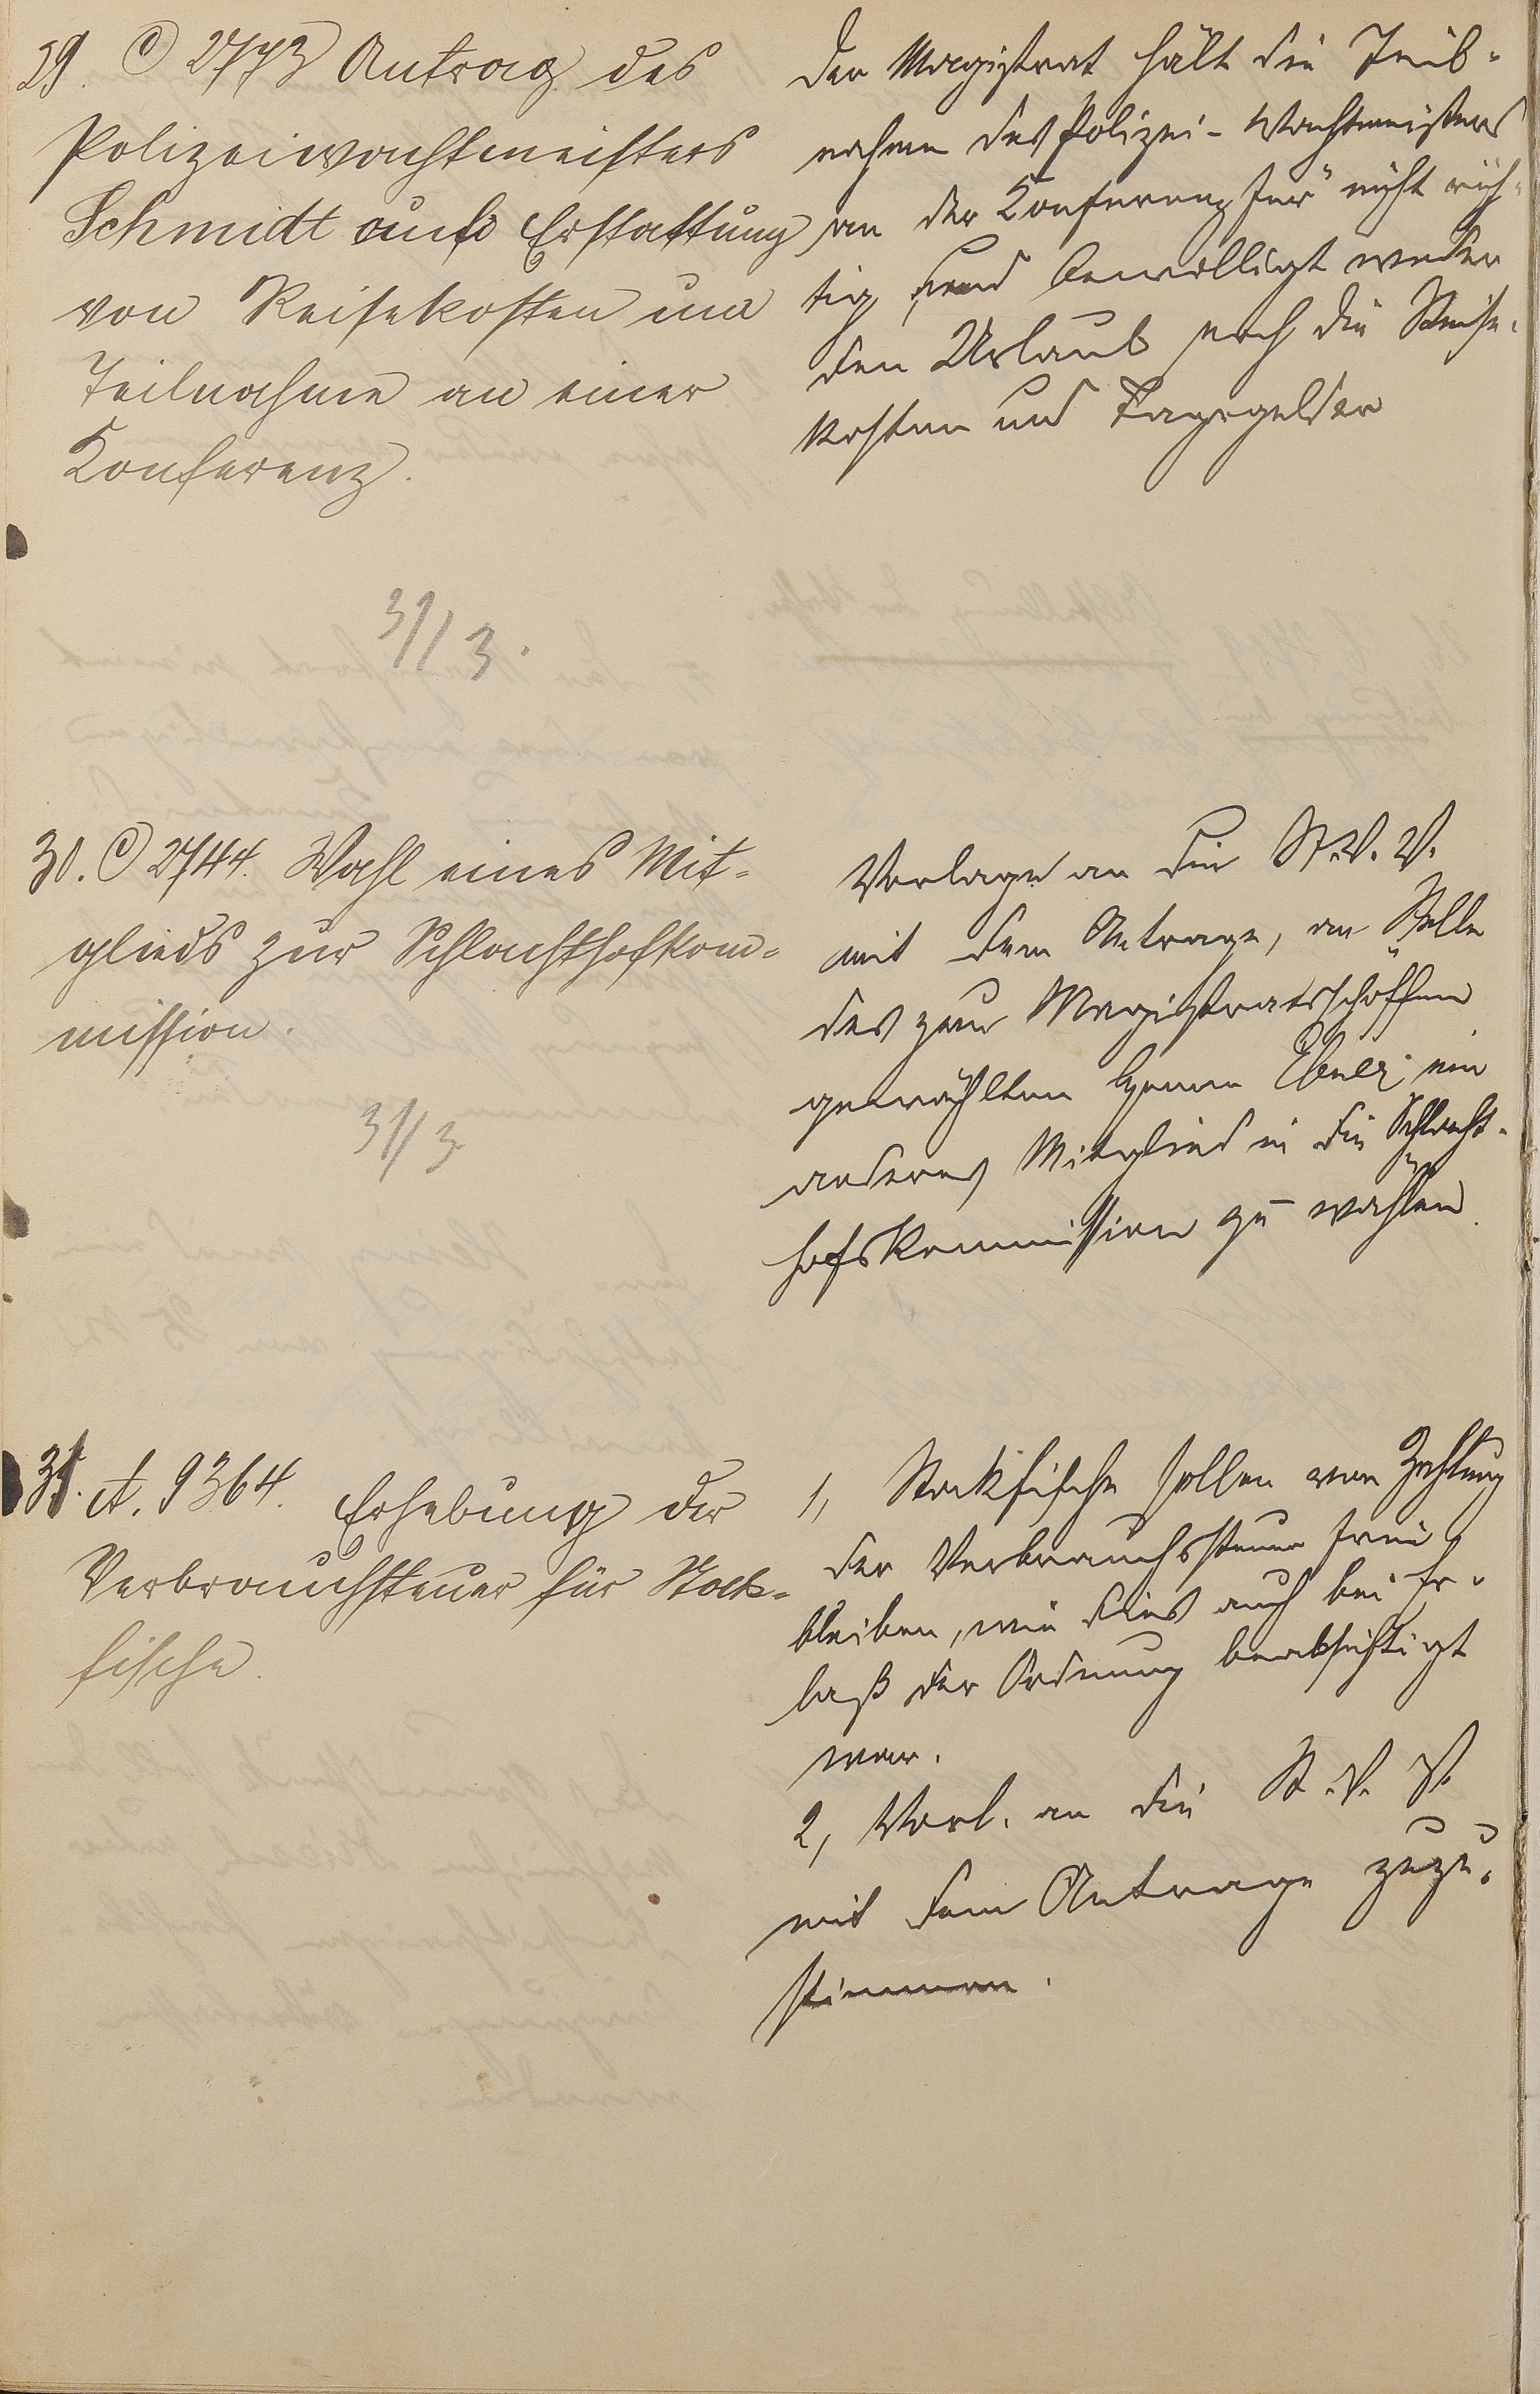 29. C 2773 Antrag des
Polizeiwachtmeisters
Schmidt auf Erstattung
von Reisekosten und
Teilnahme an einer
Konferenz.
Der Magistrat hält die Teil-
nahme des Polizei-Wachtmeisters
an der Konferenz für nicht rich-
tig, und bewilligt weder
den Urlaub noch die Reise-
kosten und Tagegelder
31/3.
30. C 2744. Wahl eines Mit-
glieds zur Schlachthofkom-
mission.
31/3
Vorlage an die St. V. V.
mit dem Antrage, an Stelle
des zum Magistratsschöffen
gewählten Herrn ein
anderes Mitglied in die Schlacht-
hofskommission zu wählen.
31. A. 9364. Erhebung der
Verbrauchsteuer für Stock-
fische.
1, Stockfische sollen von Zahlung
der Verbrauchssteuer frei
bleiben, wie dies auch bei Er-
laß der Ordnung beabsichtigt
war.
2, Vorl. an die St. V. V.
mit dem Antrage zuzu-
stimmen.